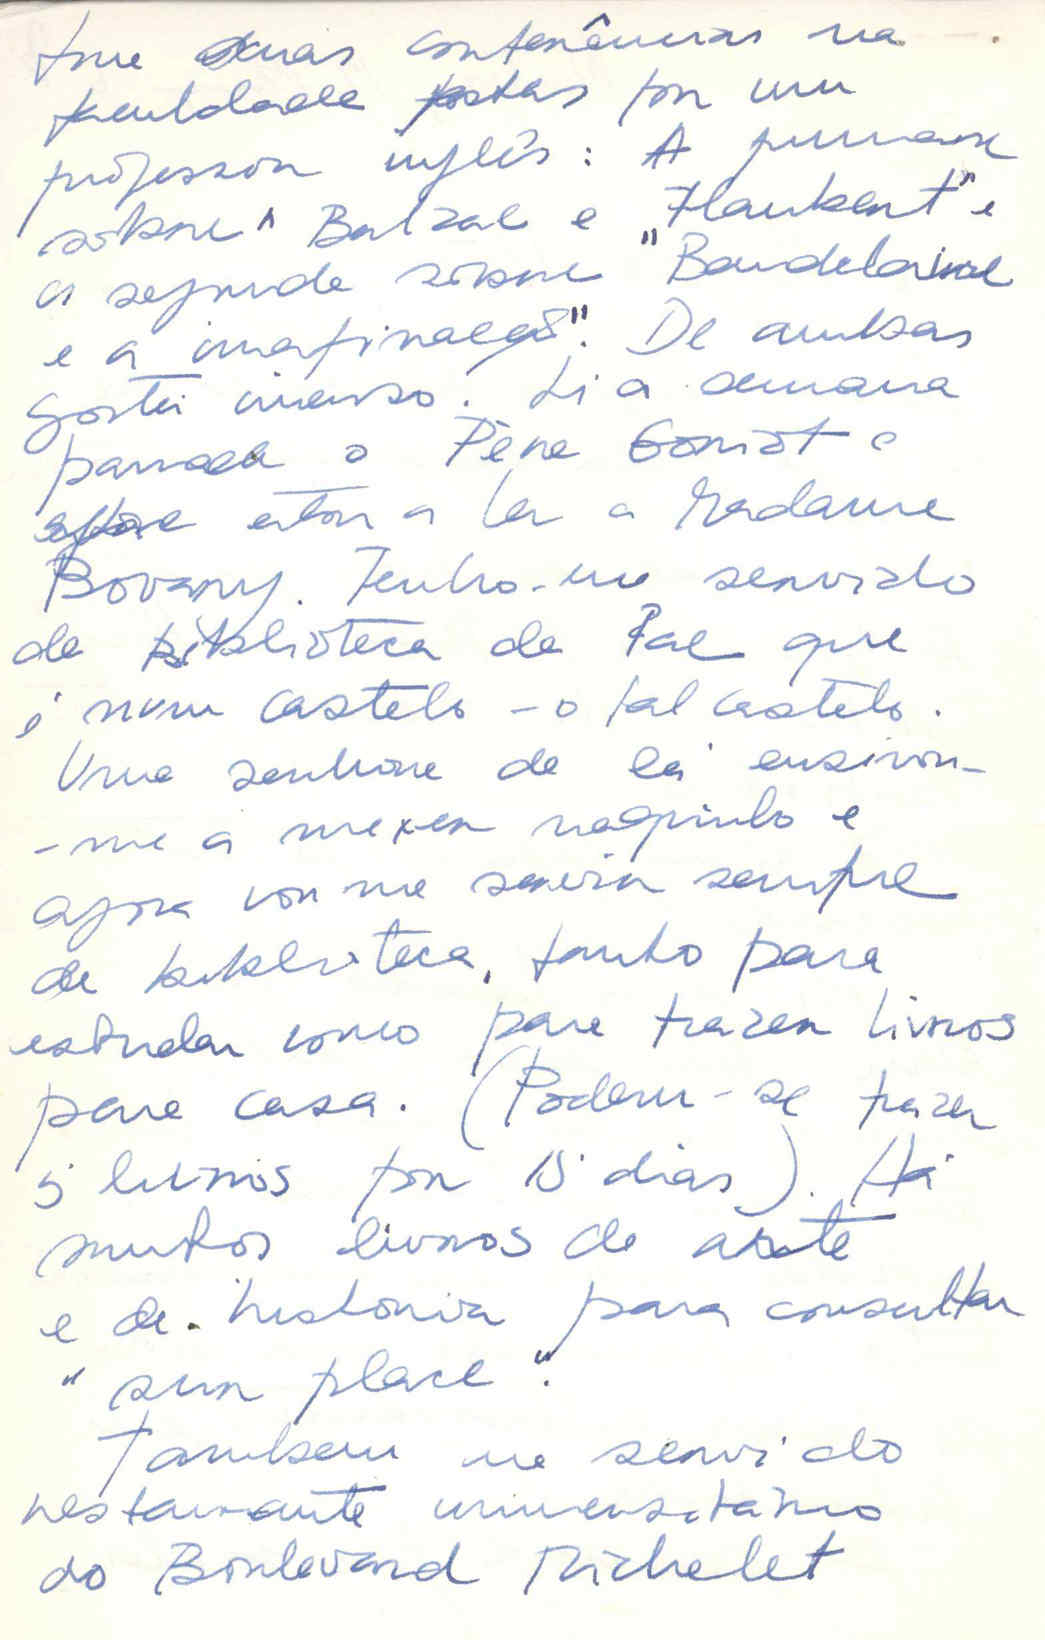 tive duas conferências na
faculdade postas por um
professor inglês: A primeira
sôbre "Balzac e Flaubert" e
a segunda sôbre "Baudelaire
e a imaginação". De ambas
gostei imenso. Li a semana
passada o Père Goriot e
estou a ler a Madame
Bovary. Tenho-me servido
da biblioteca da Fac que
é num castelo - o tal castelo.
Uma senhora de lá ensinou-
-me a mexer naquilo e
agora vou me servir sempre
da biblioteca, tanto para
estudar como para trazer livros
para casa. (Podem-se trazer
5 livros por 15 dias). Há
muitos livros de arte
e de história para consultar
"sur place".
Tambem me servi do
restaurante universitário
do Boulevard Michelet